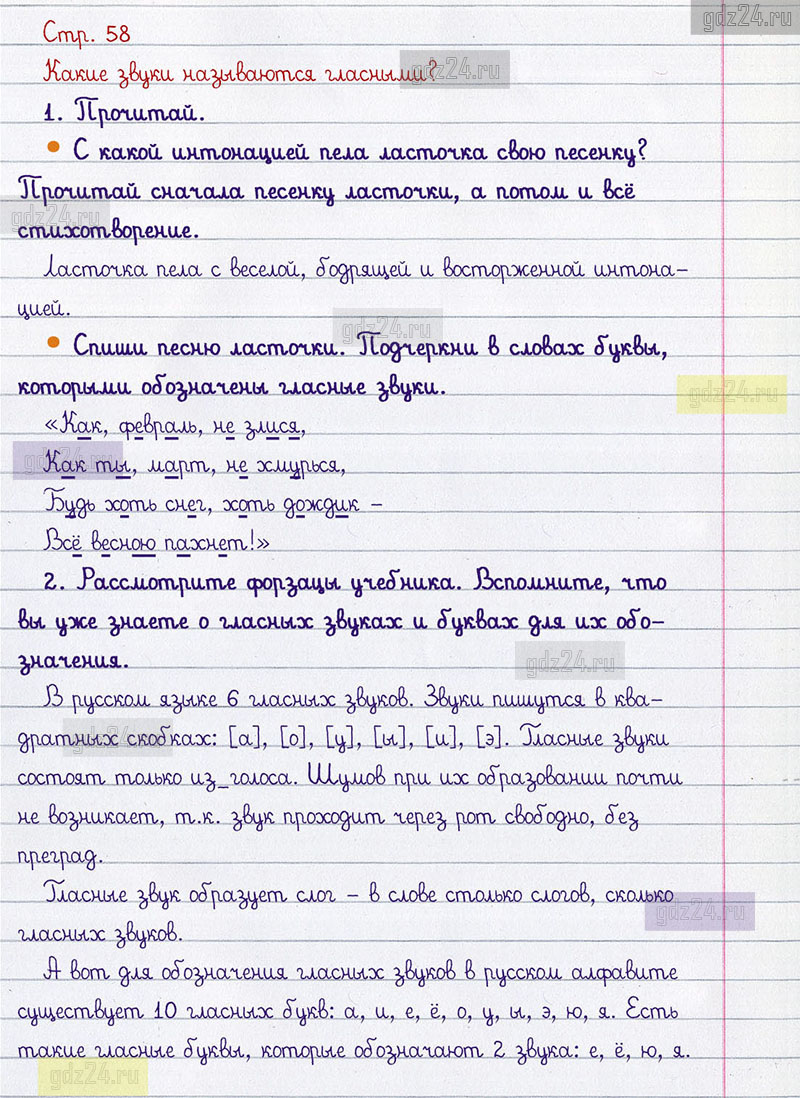 gdz24.ru
Стр. 58
Какие звуки называются гласными?
gdz24.ru
1. Прочитай.
• С какой интонацией пела ласточка свою песенку?
Прочитай сначала песенку ласточки, а потом и всё
gdz24.ru
стихотворение.
Ласточка пела с веселой, бодрящей и восторженной интона-
цией.
gdz24.ru
• Спиши песню ласточки. Подчеркни в словах буквы,
которыми обозначены гласные звуки.
gdz24.ru
«Как, февраль, не злися,
gdz24.ru
Как ты, март, не хмурься,
Будь хоть снег, хоть дождик –
Всё весною пахнет!»
2. Рассмотрите форзацы учебника. Вспомните, что
вы уже знаете о гласных звуках и буквах для их обо-
значения.
gdz24.ru
В русском языке 6 гласных звуков. Звуки пишутся в ква-
gdz24.ru
дратных скобках: [а], [о], [у], [ы], [и], [э]. Гласные звуки
состоят только из_голоса. Шумов при их образовании почти
не возникает, т.к. звук проходит через рот свободно, без
преград.
Гласные звук образует слог – в слове столько слогов, сколько
gdz24.ru
гласных звуков.
А вот для обозначения гласных звуков в русском алфавите
существует 10 гласных букв: а, и, е, ё, о, у, ы, э, ю, я. Есть
такие гласные буквы, которые обозначают 2 звука: е, ё, ю, я.
gdz24.ru